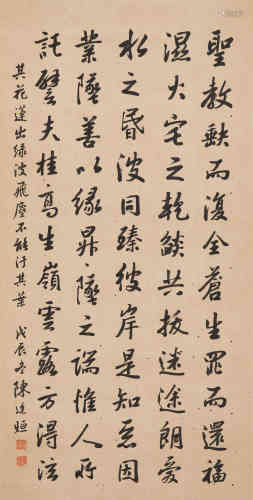 聖教缺而復全蒼生罪而還福
濕火宅之乾燄共拔迷途朗愛
水之昏波同臻彼岸是知惡因
業墜善以緣昇墜之端惟人所
託譬夫桂高生嶺雲露方得泫
其花蓮出綠波飛塵不能汙其葉 戊辰冬 陳